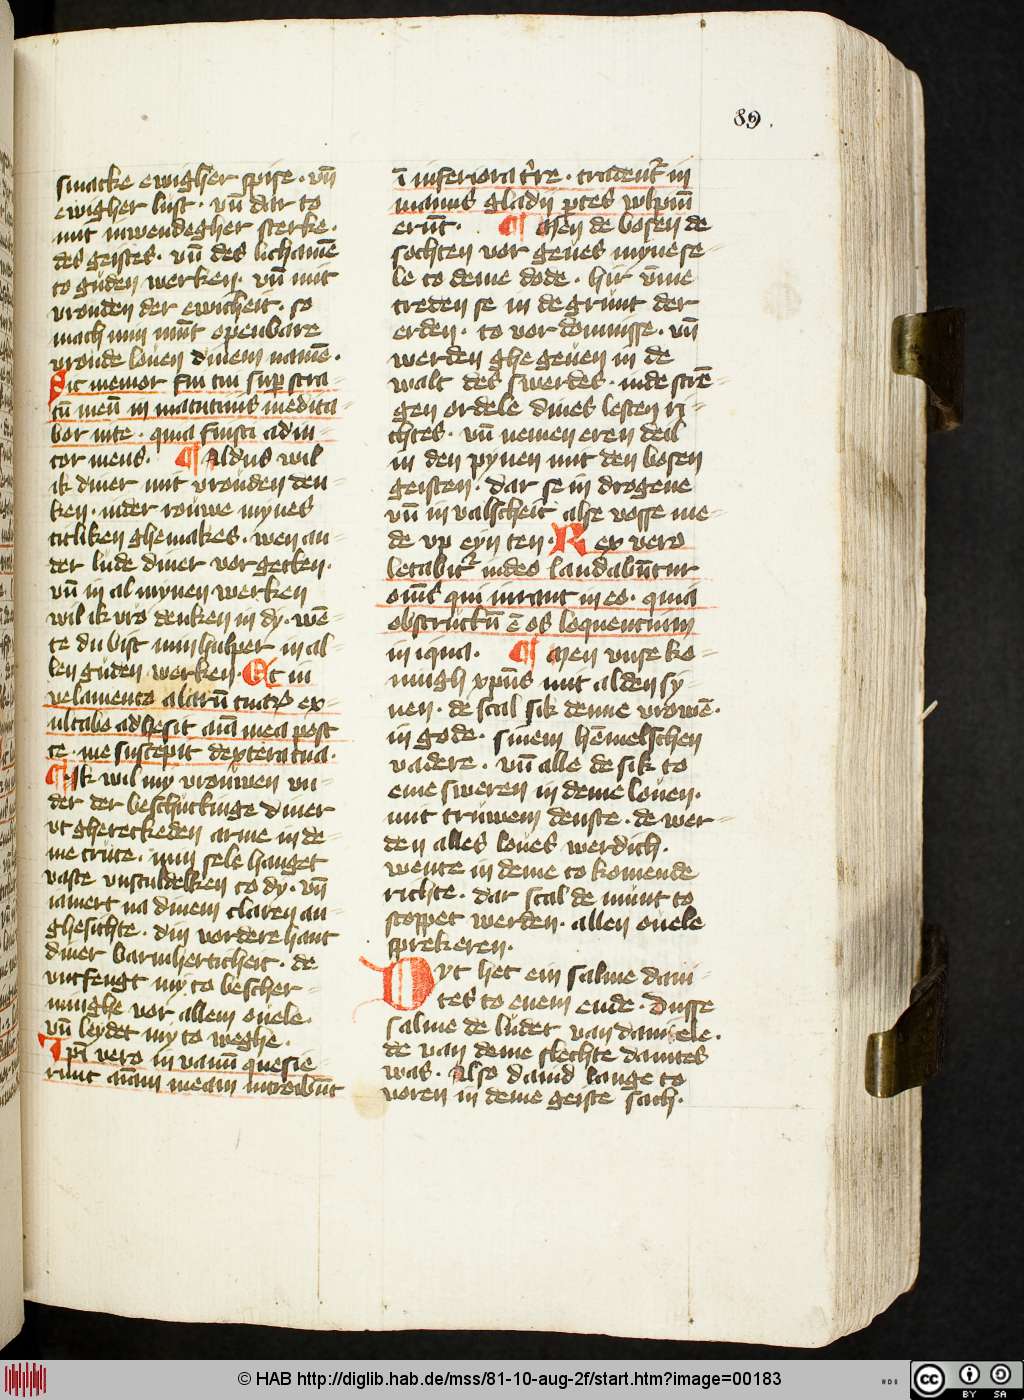 89.
smacke ewigher spise · vn̄
ewigher lust · vn̄ dar to
mit inwendegher sterke ·
des geistes · vn̄ des lichamē
to guden werken · vn̄ mit
vrouden der ewicheit · so
mach min munt openbare
vroude louen dinem namē ·
Sic memor fui tui sup stra-
tū meū in matutinis medita-
bor in te · quia fuisti adiu-
tor meus · ¶ Aldus wil
ik diner mit vrouden den-
ken · in der rouwe mynes
titliken ghemakes · wen an-
der lude diner vorgeten ·
vn̄ in al mynen werken
wil ik vro denken in dy · wē-
te du bist min hulper in al-
len guden werken · Et in
velamento alarū tuarͦ ex-
ultabo adhesit aīa mea post
te · me suscepit dextera tua ·
¶ Ik wil my vrouwen vn-
der der beschuttinge diner
vtghereckeden arme in de-
me crute · min sele hanget
vaste vnsculdelken to dy · vn̄
iamert na dinem claren an-
ghesichte · din vordere hant
diner barmherticheit · de
vntfengt my to bescher-
minghe vor allem ouele ·
vn̄ leydet my to weghe ·
Ipī vero in vanū quesie
runt aīam meam introibūt
ī inferiora tr̄re · tradentr̄ in
manus gladii ptes wlpiū
erūt · ¶ Men de bosen de
sochten vor geues myne se-
le to deme dode · hir vm̄e
treden se in de grunt der
erden · to vordomnisse · vn̄
werden ghegeuen in de
walt des swerdes · in de strē-
gen ordele dines lesten ri-
chtes · vn̄ nemen eren deil
in den pynen mit den bosen
geisten · dar se in drogene
vn̄ in valscheit alse vosse me-
de vp eyn ten · Rex vero
letabitr̄ in deo laudabūtur
oīns qui iurant in eo · quia
obstructū ē os loquentium
iniqua · ¶ Men vnse ko-
ningh xpūs mit al den sy-
nen · de scal sik denne vrowē ·
in gode · sinem hemelschen
vadere · vn̄ alle de sik to
eme sweren in deme louen ·
mit truwem denste · de wer-
den alles loues werdich ·
wente in deme to komende
richte · dar scal de munt to
stoppet werden · allen ouele
sprekeren ·
Dyt het ein salme daui-
tes to enem ende · Dusse
salme de ludet van daniele ·
de van deme slechte dauites
was · Also dauid lange to
voren in deme geiste sach ·
© HAB http://diglib.hab.de/mss/81-10-aug-2f/start.htm?image=00183
HAB
cc
BY SA